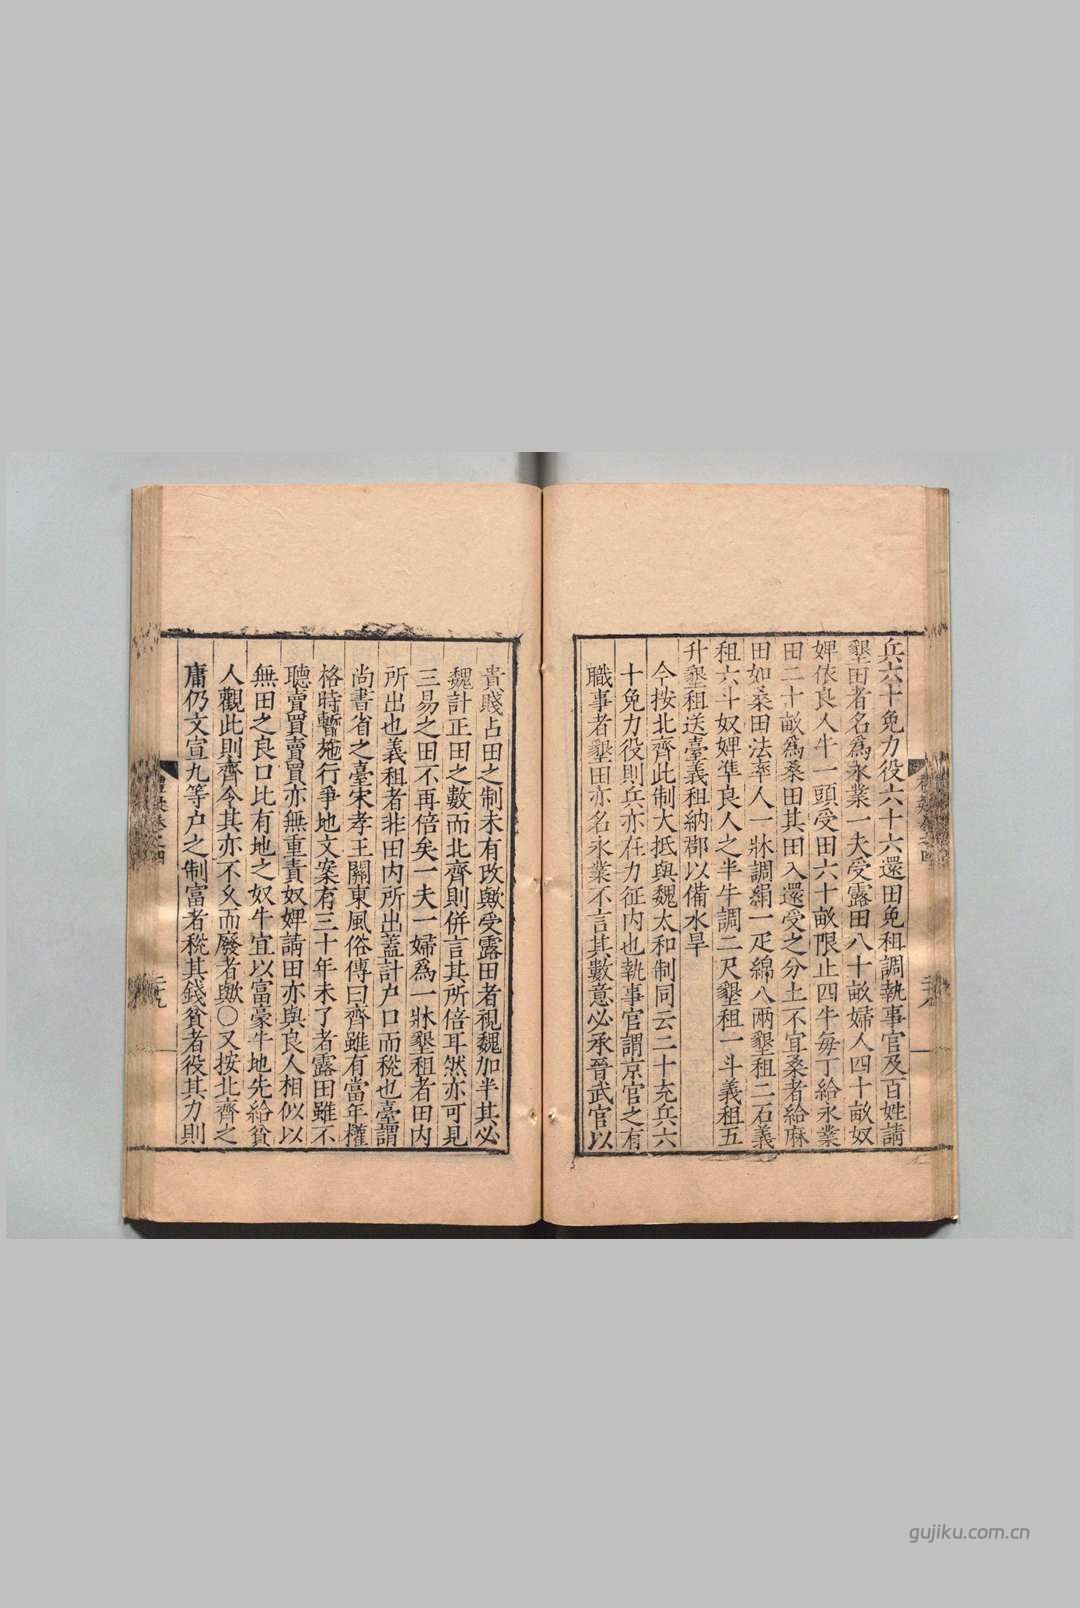 兵六十免力役六十六還田免租調執事官及百姓請
墾田者名爲永業一夫受露田八十畝婦人四十畝奴
婢依良人牛一頭受田六十畝限止四牛每丁給永業
田二十畝爲桑田其田入還受之分土不宜桑者給麻
田如桑田法率人一牀調絹一疋綿八兩墾租二石義
租六斗奴婢準良人之半牛調二尺墾租一斗義租五
升墾租送臺義租納郡以備水旱
今按北齊此制大抵與魏太和制同云二十充兵六
十免力役則兵亦在力征内也執事官謂京官之有
職事者墾田亦名永業不言其數意必承晉武官以
貴賤占田之制未有改歟受露田者視魏加半其必
魏計正田之數而北齊則併言其所倍耳然亦可見
三易之田不再倍矣一夫一婦爲一牀墾租者田内
所出也義租者非田内所出蓋計户口而稅也臺謂
尚書省之臺宋孝王關東風俗傳曰齊雖有當年權
格時暫施行爭地文案有三十年未了者露田雖不
聽賣買賣買亦無重責奴婢請田亦與良人相似以
無田之良口比有地之奴牛宜以富豪牛地先給貧
人觀此則齊令其亦不乆而廢者歟〇又按北齊之
庸仍文宣九等户之制富者稅其錢貧者役其力則
禮疑卷之四
二十九
gujiku.com.cn